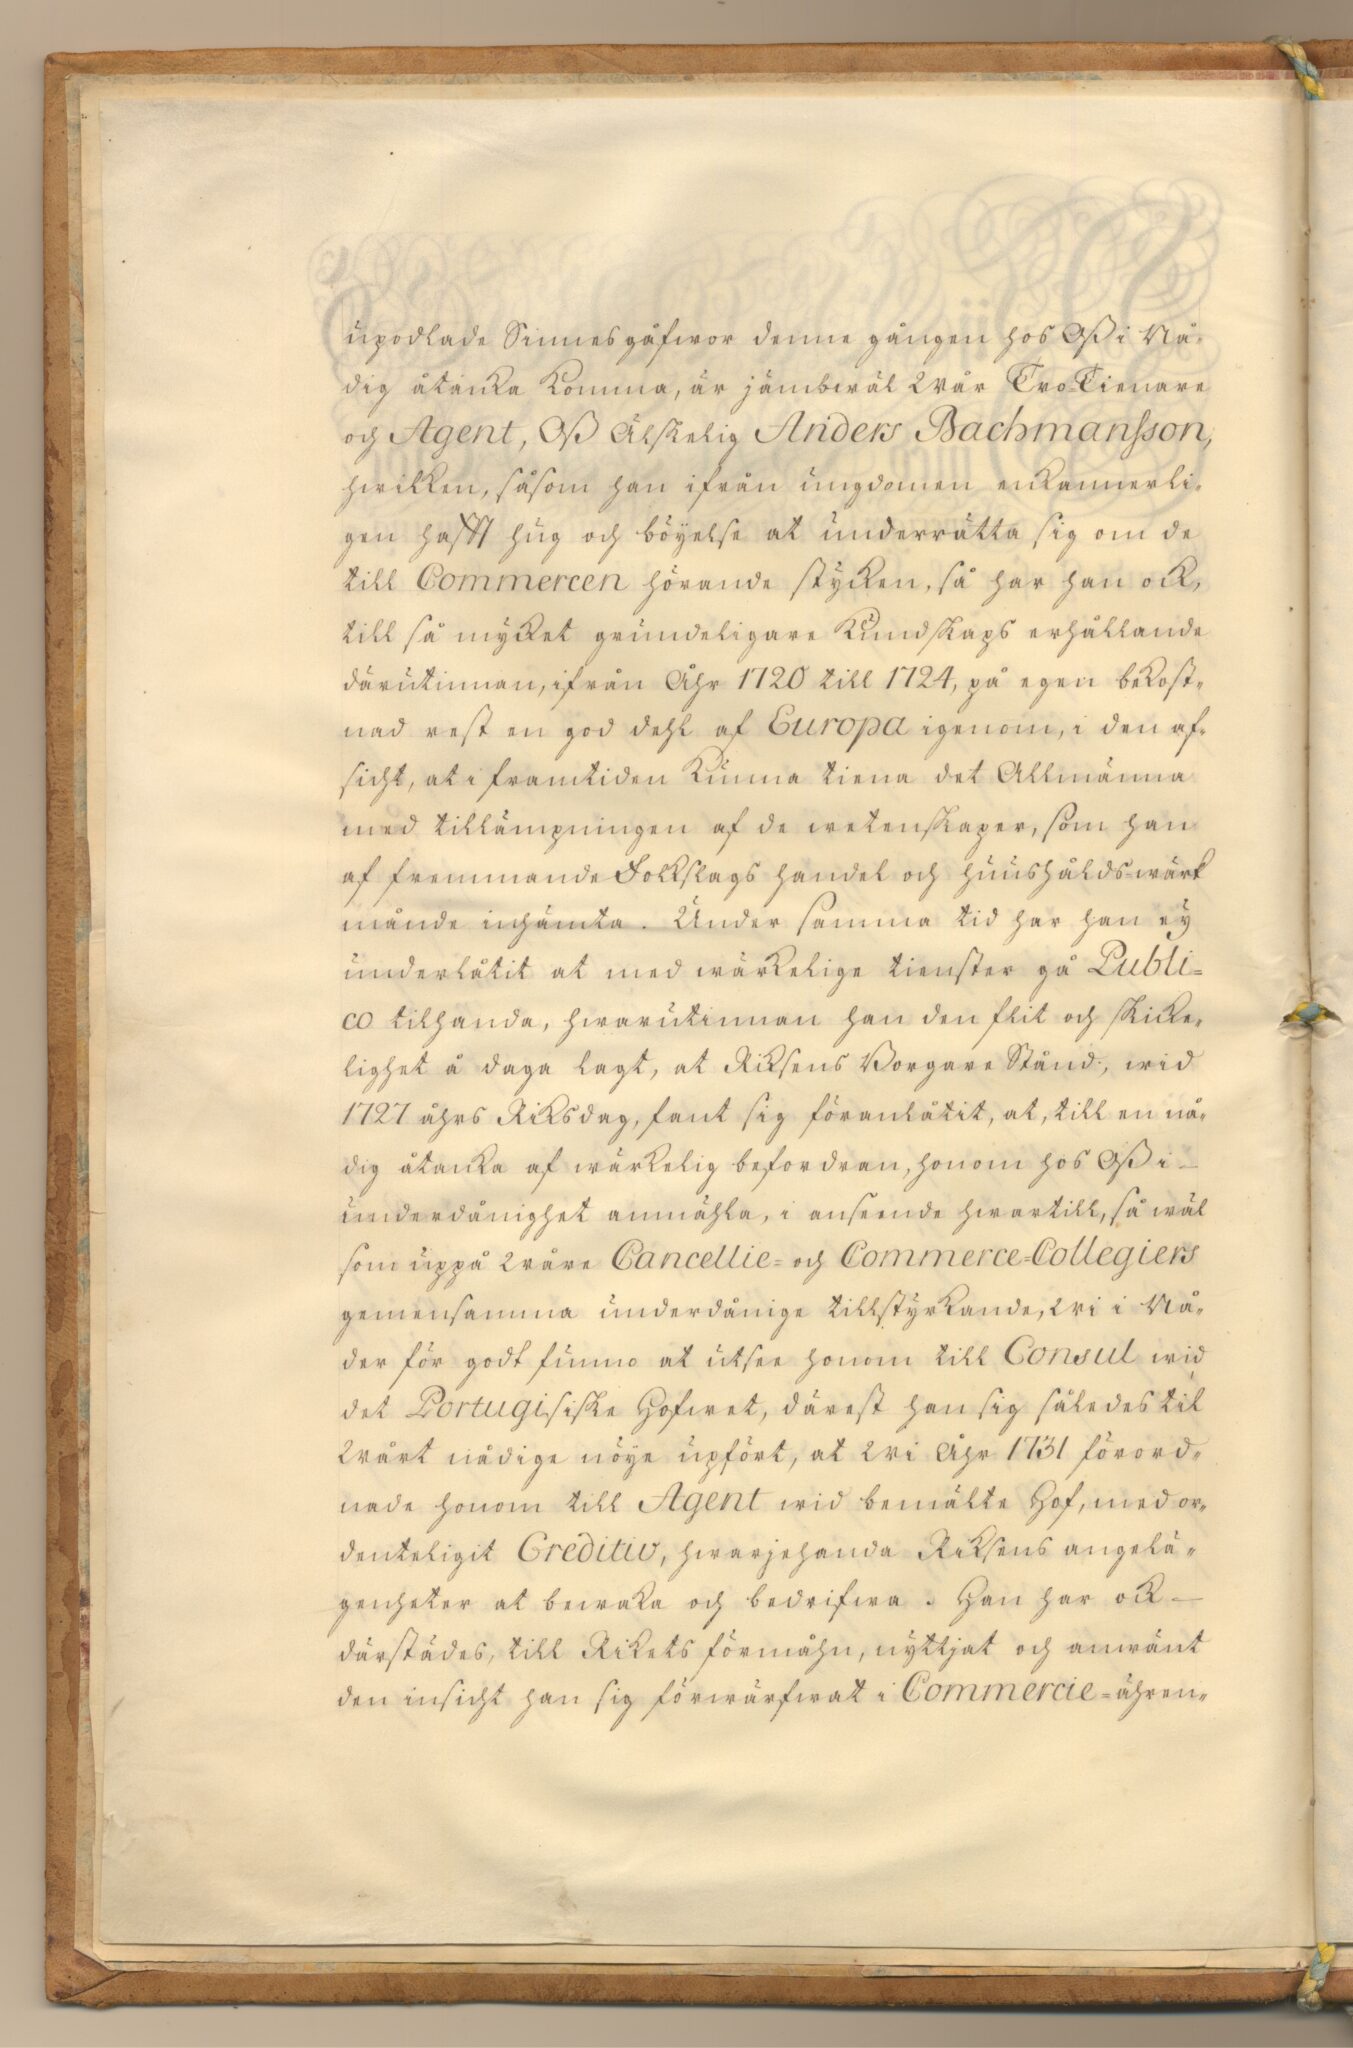 upodlade Sinnesgåfwor denne gången hos Oß i Nå-
dig åtancka komma, är jämbwäl Wår Tro-Tienare
och Agent, Oß Älskelig Anders Bachmansson,
hwilken, såsom han ifrån ungdomen enkannerli-
gen hafft hug och böyelse at underrätta sig om de
till Commercen hörande stycken, så har han ock,
till så mycket grundeligare Kundskaps erhållande
därutinnan, ifrån Åhr 1720 till 1724, på egen bekost-
nad rest en god dehl af Europa igenom, i den af-
sicht, at i framtiden kunna tiena det Allmänna
med tillämpningen af de wetenskaper, som han
af fremmande Folkslags handel och huushålds-wärk
månde inhämta. Under samma tid har han ey
underlåtit at med wärkelige tienster gå Publi-
co tilhanda, hwarutinnan han den flit och skicke-
lighet å daga lagt, at Riksens Borgare Stånd, wid
1727 åhrs Riksdag, fant sig föranlåtit, at, till en nå-
dig åtancka af wärkelig befordran, honom hos Oß i
underdånighet anmähla, i anseende hwartill, så wäl
som uppå Wåre Cancellie- och Commerce-Collegiers
gemensamma underdånige tillstyrkande, Wi i Nå-
der för godt funno at utsee honom till Consul wid
det Portugisiske Hofwet, därest han sig således til
Wårt nådige nöye upfört, at Wi Åhr 1731 förord-
nade honom till Agent wid bemälte Hof, med or-
denteligit Creditiv, hwarjehanda Riksens angelä-
genheter at bewaka och bedrifwa. Han har ock
därstädes, till Rikets förmåhn, nyttjat och anwänt
den insicht han sig förwärfwat i Commercie-ähren-